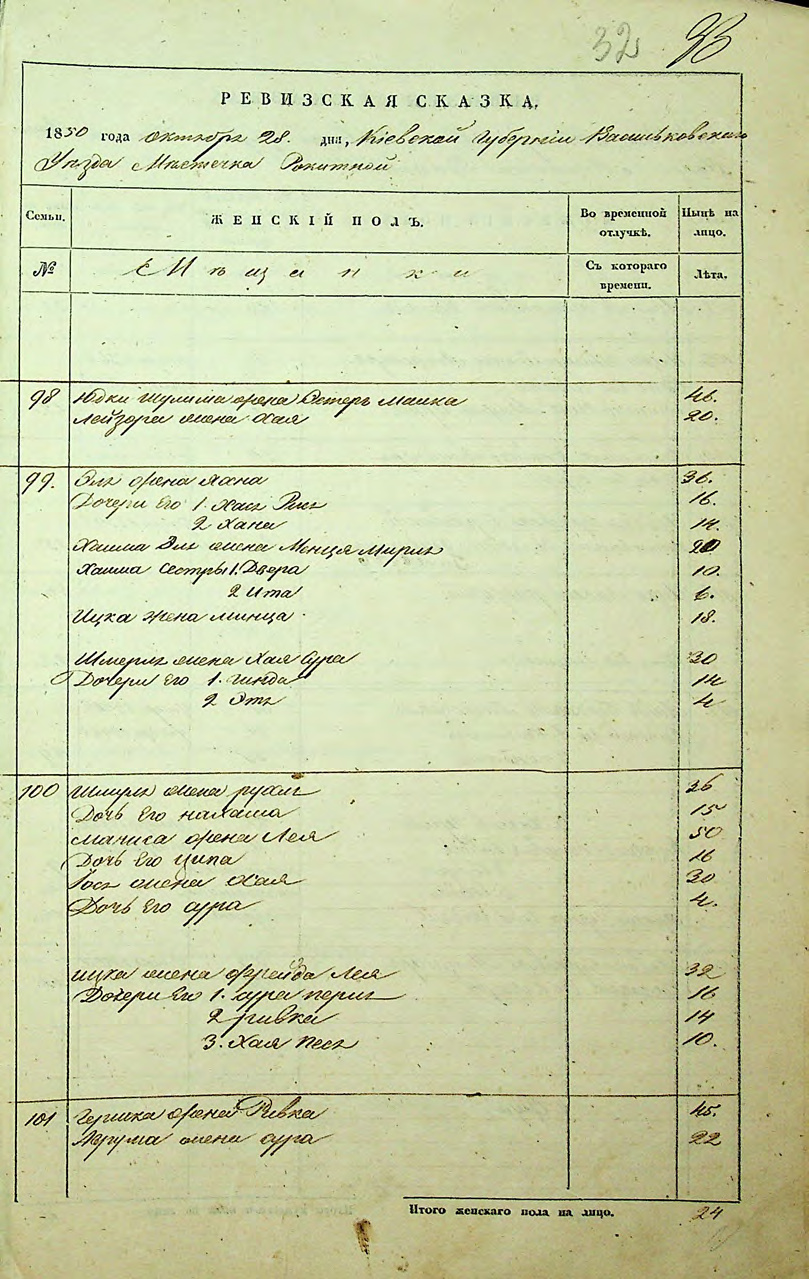 32 33
РЕВИЗСКАЯ СКАЗКА,
1850 года октября 28. дня, Кіевской Губерніи Васильковскаго
Уѣзда Мѣстечка Рокитной
Семьи. ЖЕНСКІЙ ПОЛЪ. Во временной отлучкѣ. Нынѣ на лицо.
№ Мѣщанки Съ котораго времени. Лѣта.
98 Юдки Шулима жена Эстеръ Малка 46.
Лейзора жена Хая 20.
99. Эль жена Хана 36.
Дочери Его 1. Хая 16.
2 Хана 14.
Хаима Эль жена Менця Мирль 20
Хаима Сестры 1. Двера 10.
2 Ита 6.
Ицка жена Минца 18.
Шмерль жена Хая Сура 30
Дочери Его 1. Гинда 14
2 Эть 4
100 Шмуль жена Рухль 36
Дочь Его Нахама 15
Маниса жена Лея 50
Дочь Его Ципа 16
Іось жена Хая 30
Дочь Его Сура 4.
Ицка жена Фрейда Лея 32
Дочери Его 1. Сура Перль 16
2 Ривка 14
3. Хая Песь 10.
101 Гершка жена Ривка 45.
жена Сура 22
Итого женскаго пола на лицо. 24